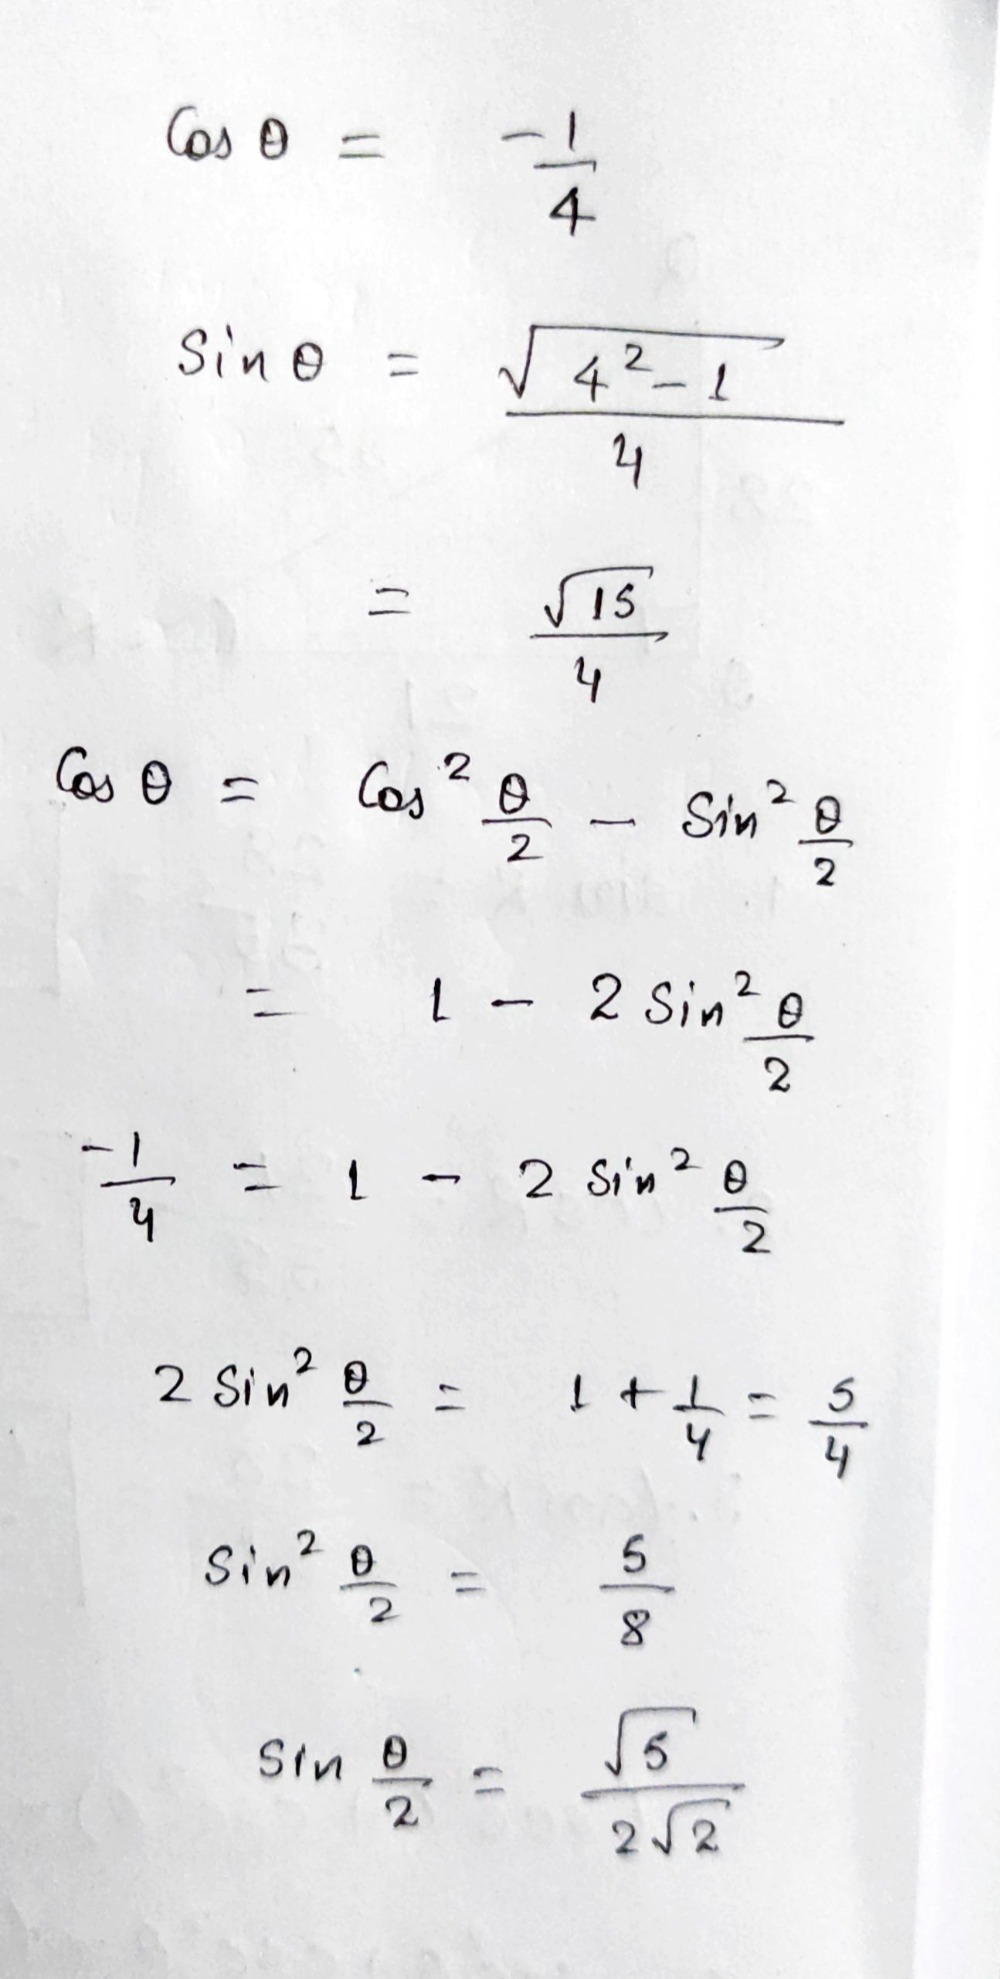 Cos θ = -1/4
Sin θ = √(4² - 1)/4
= √15/4
Cos θ = Cos² θ/2 - Sin² θ/2
= 1 - 2 Sin² θ/2
-1/4 = 1 - 2 Sin² θ/2
2 Sin² θ/2 = 1 + 1/4 = 5/4
Sin² θ/2 = 5/8
Sin θ/2 = √5/2√2